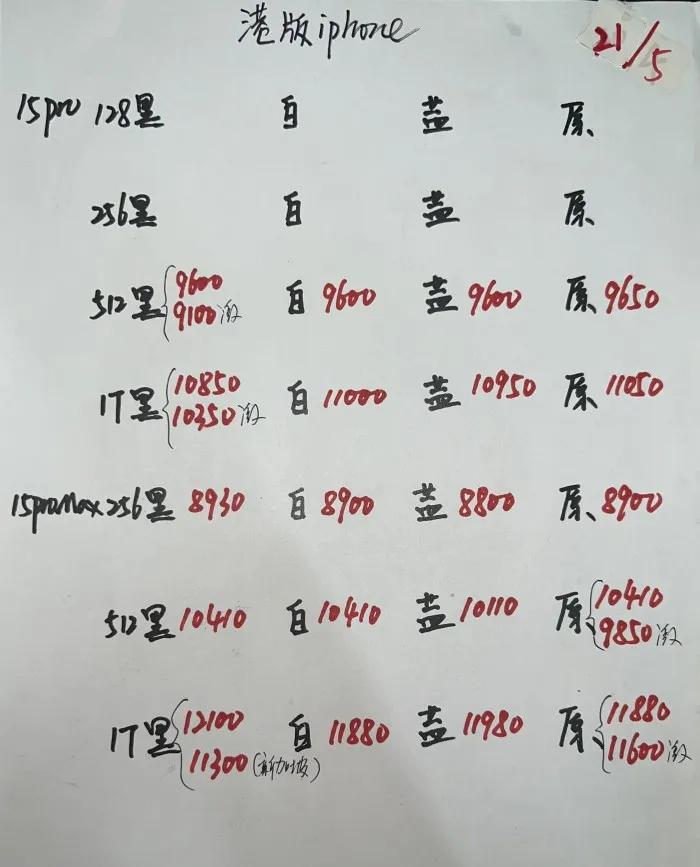 港版iphone
21/5
15pro 128黑 白 蓝 原
256黑 白 蓝 原
512黑 9600 白 9600 蓝 9600 原 9650
9100激
1T黑 10850 白 11000 蓝 10950 原 11050
10350激
15promax 256黑 8930 白 8900 蓝 8800 原 8900
512黑 10410 白 10410 蓝 10110 原 10410
9850激
1T黑 12100 白 11880 蓝 11980 原 11880
11300 11600激